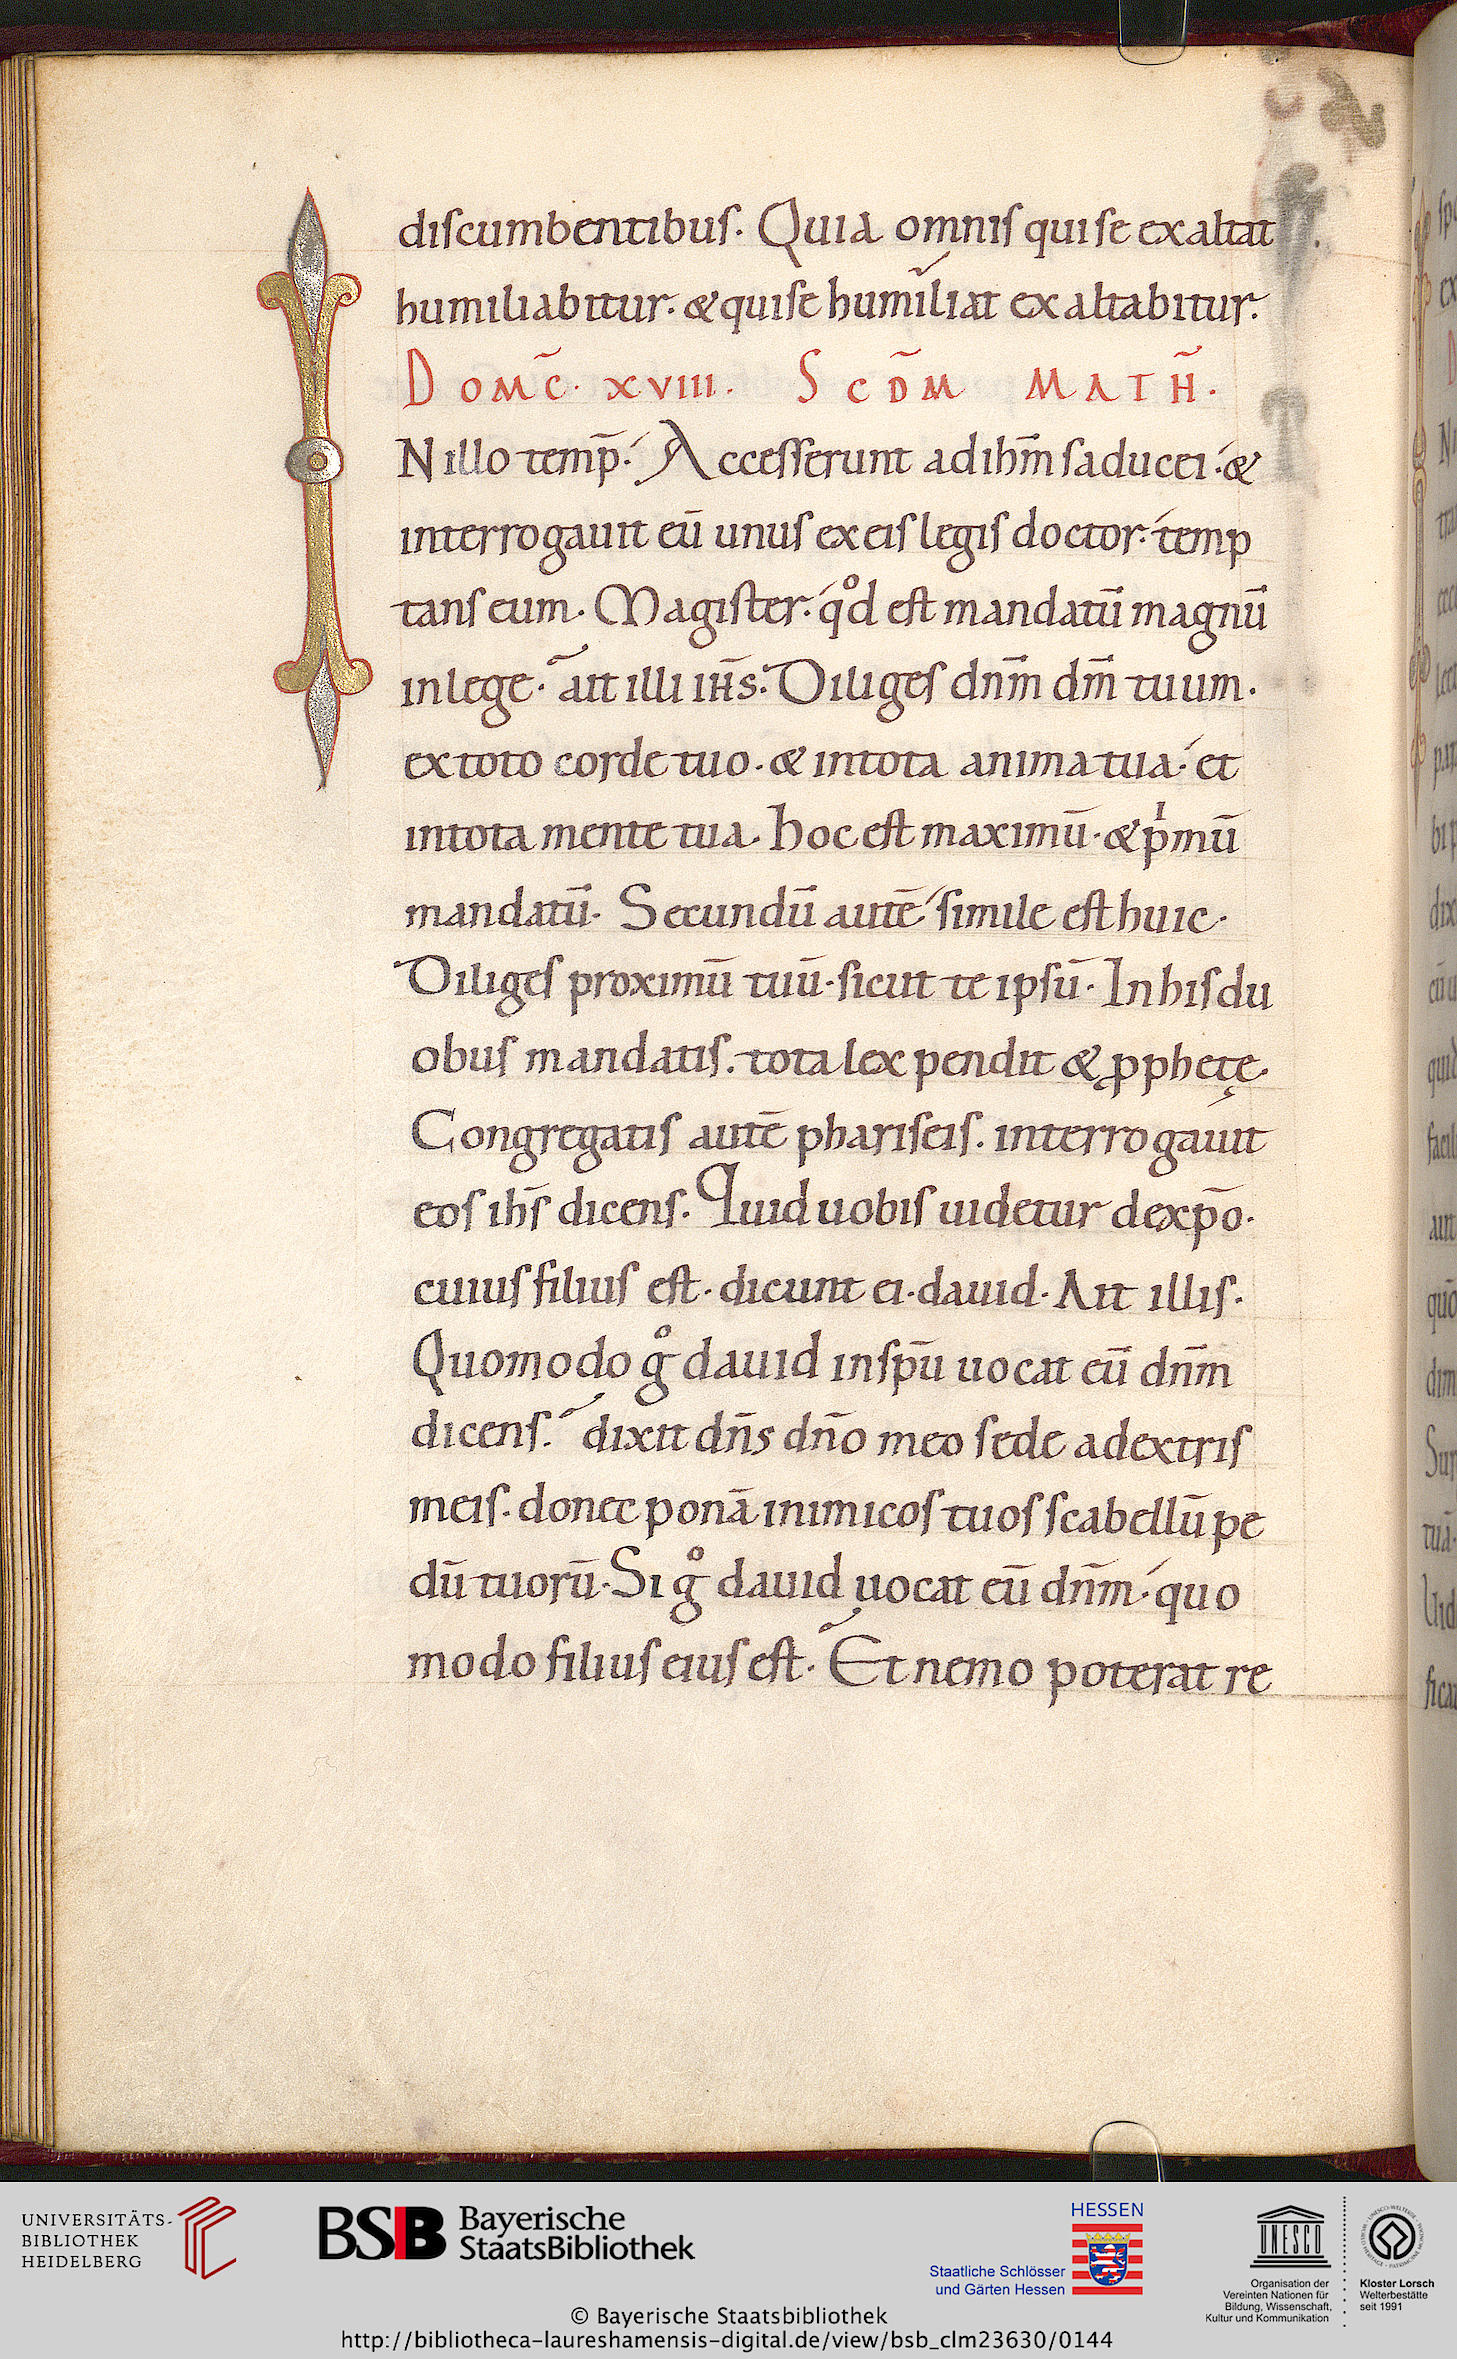 discumbentibus. Quia omnis qui se exaltat
humiliabitur. & qui se humiliat exaltabitur.
DOMC̄. XVIII. SCD̄M MATH̄.
N illo temp̄. Accesserunt ad ihm̄ saducei. &
interrogauit eū unus ex eis legis doctor. temp
tans eum. Magister. qͦd est mandatū magnū
in lege. ait illi ih̄s. Diliges dnm̄ dm̄ tuum.
ex toto corde tuo. & in tota anima tua. et
in tota mente tua. Hoc est maximū. & pͥmū
mandatū. Secundū autē simile est huic.
Diliges proximū tuū. sicut te ipsū. In his du
obus mandatis. tota lex pendit & ꝓphetę.
Congregatis autē phariseis. interrogauit
eos ih̄s dicens. Quid uobis uidetur de xp̄o.
cuius filius est. dicunt ei. dauid. Ait illis.
Quomodo gͦ dauid in sp̄u uocat eū dnm̄
dicens. dixit dn̄s dn̄o meo sede a dextris
meis. donec ponā inimicos tuos scabellū pe
dū tuorū. Si gͦ dauid uocat eū dn̄m. quo
modo filius eius est. Et nemo poterat re
UNIVERSITÄTS-
BIBLIOTHEK
HEIDELBERG
BSB Bayerische
StaatsBibliothek
HESSEN
Staatliche Schlösser
und Gärten Hessen
UNESCO
Organisation der
Vereinten Nationen für
Bildung, Wissenschaft,
Kultur und Kommunikation
Kloster Lorsch
Welterbestätte
seit 1991
© Bayerische Staatsbibliothek
http://bibliotheca-laureshamensis-digital.de/view/bsb_clm23630/0144